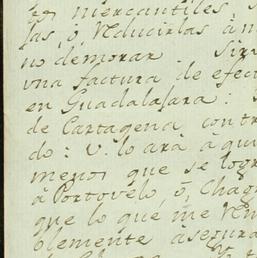 mercantiles
las, ó reducirlas à
no demorar
una factura de efec
en Guadalaxara:
de Cartagena contr
do: V. lo ará à qui
menos que se logr
à Portovelo, ó, Chag
que lo que me
blemente àsegura